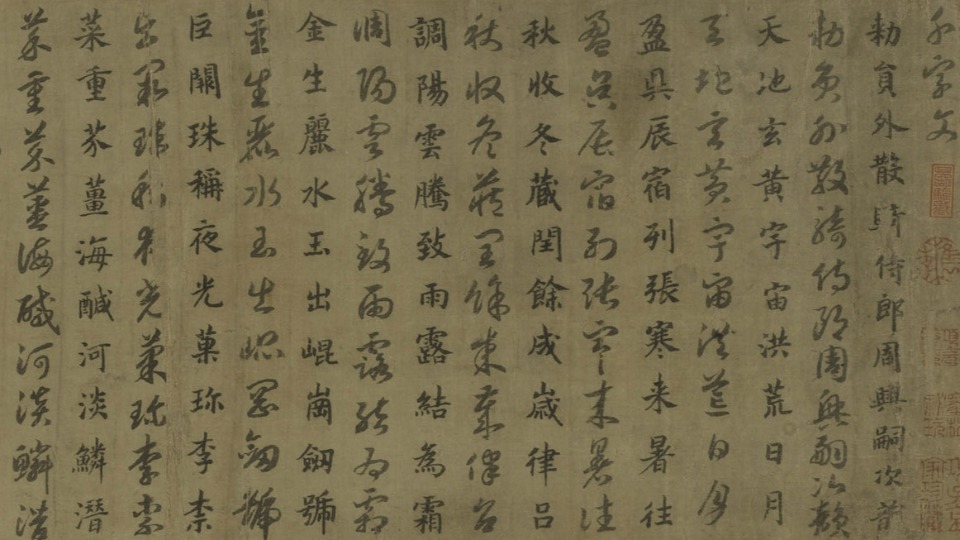 千字文
勅員外散騎侍郎周興嗣次韵
勅員外散騎侍郎周興嗣次韻
天地玄黄宇宙洪荒日月
天地玄黄宇宙洪荒日月
盈昃辰宿列張寒来暑往
盈昃辰宿列張寒来暑往
秋收冬蔵閏餘成歳律吕
秋收冬蔵閏餘成歳律吕
調陽雲騰致雨露結為霜
調陽雲騰致雨露結為霜
金生麗水玉出崐崗劒號
金生麗水玉出崐崗劒號
巨闕珠稱夜光菓珎李柰
巨闕珠稱夜光菓珎李柰
菜重芥薑海鹹河淡鱗潛
菜重芥薑海鹹河淡鱗潛